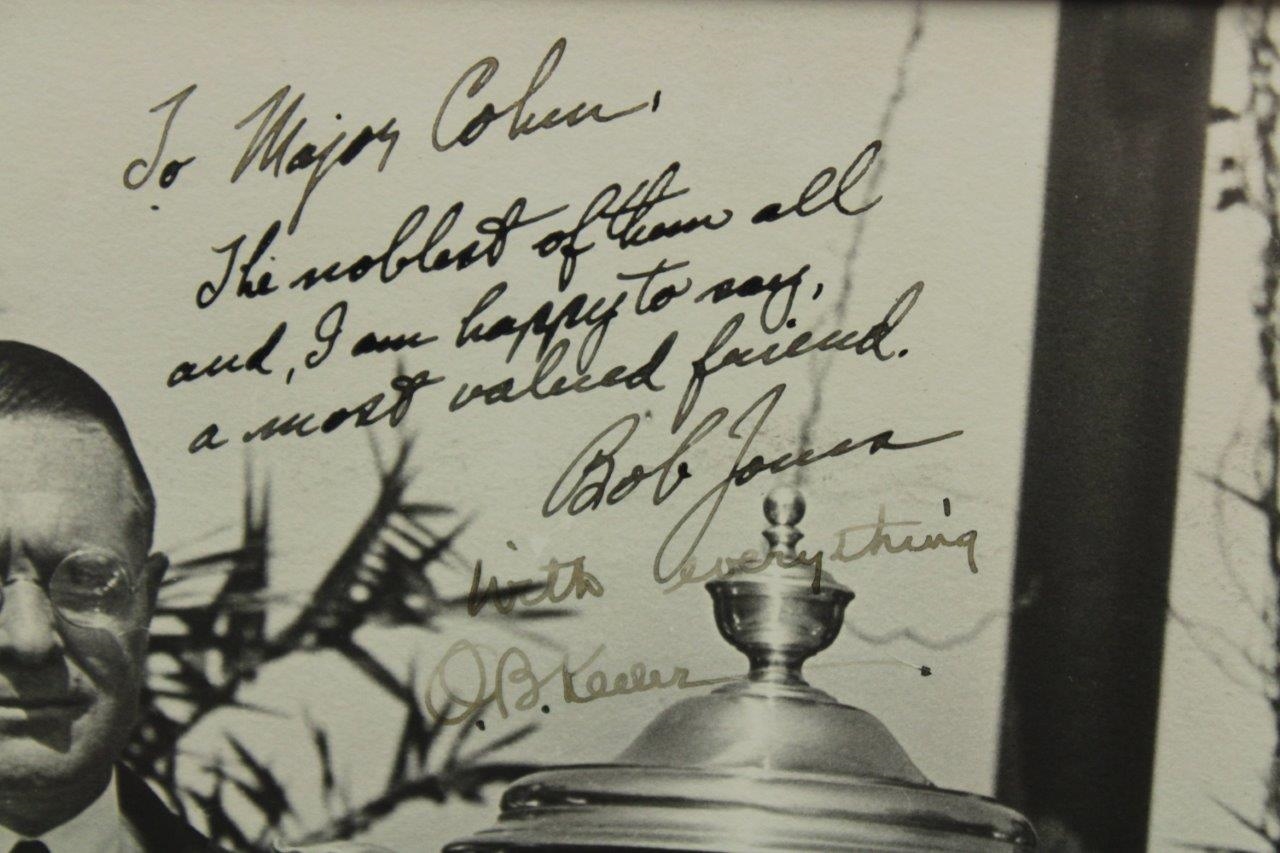 To Major Cohen,
The noblest of them all
and, I am happy to say,
a most valued friend.
Bob Jones
With everything
O.B. Keeler